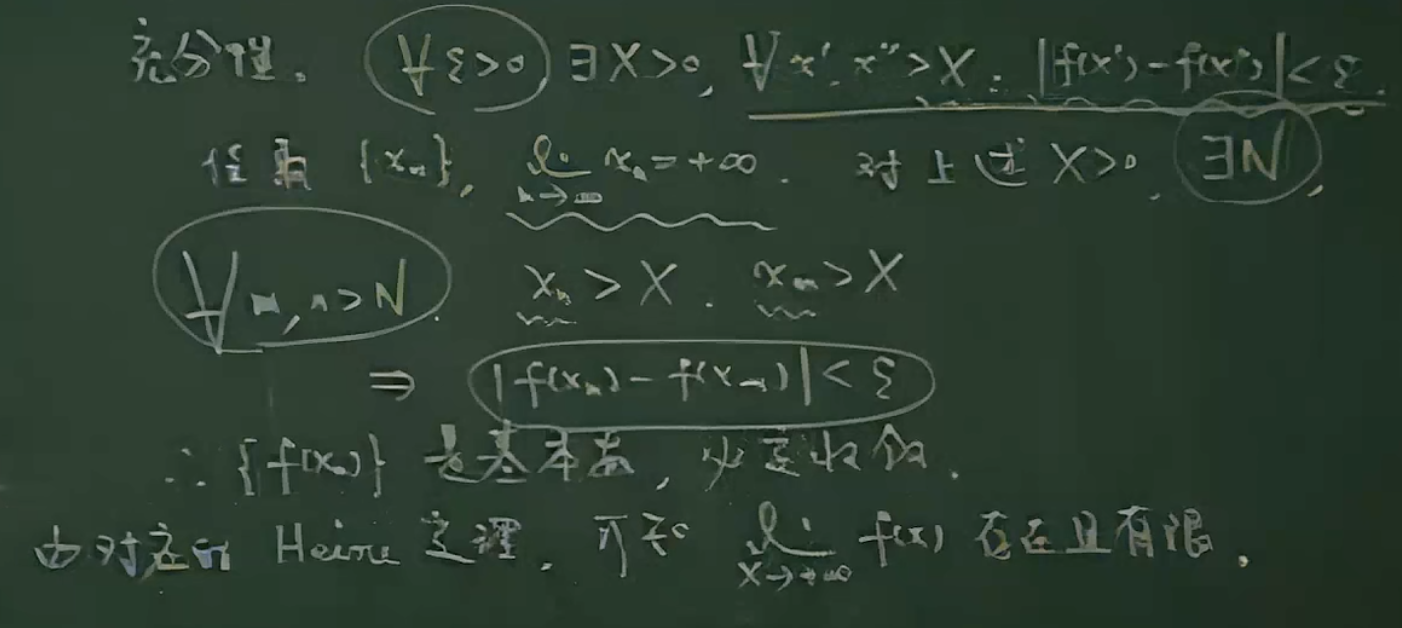 充分性. ∀ε>0 ∃X>0, ∀x', x''>X: |f(x')-f(x'')|<ε.
任取 {xₙ}, lim_{n→∞} xₙ=+∞. 对上述 X>0, ∃N,
∀m,n>N. xₙ>X. xₘ>X
⇒ |f(xₙ)-f(xₘ)|<ε
∴ {f(xₙ)} 是基本列, 必定收敛.
由对应的 Heine 定理. 可知 lim_{x→+∞} f(x) 存在且有限.